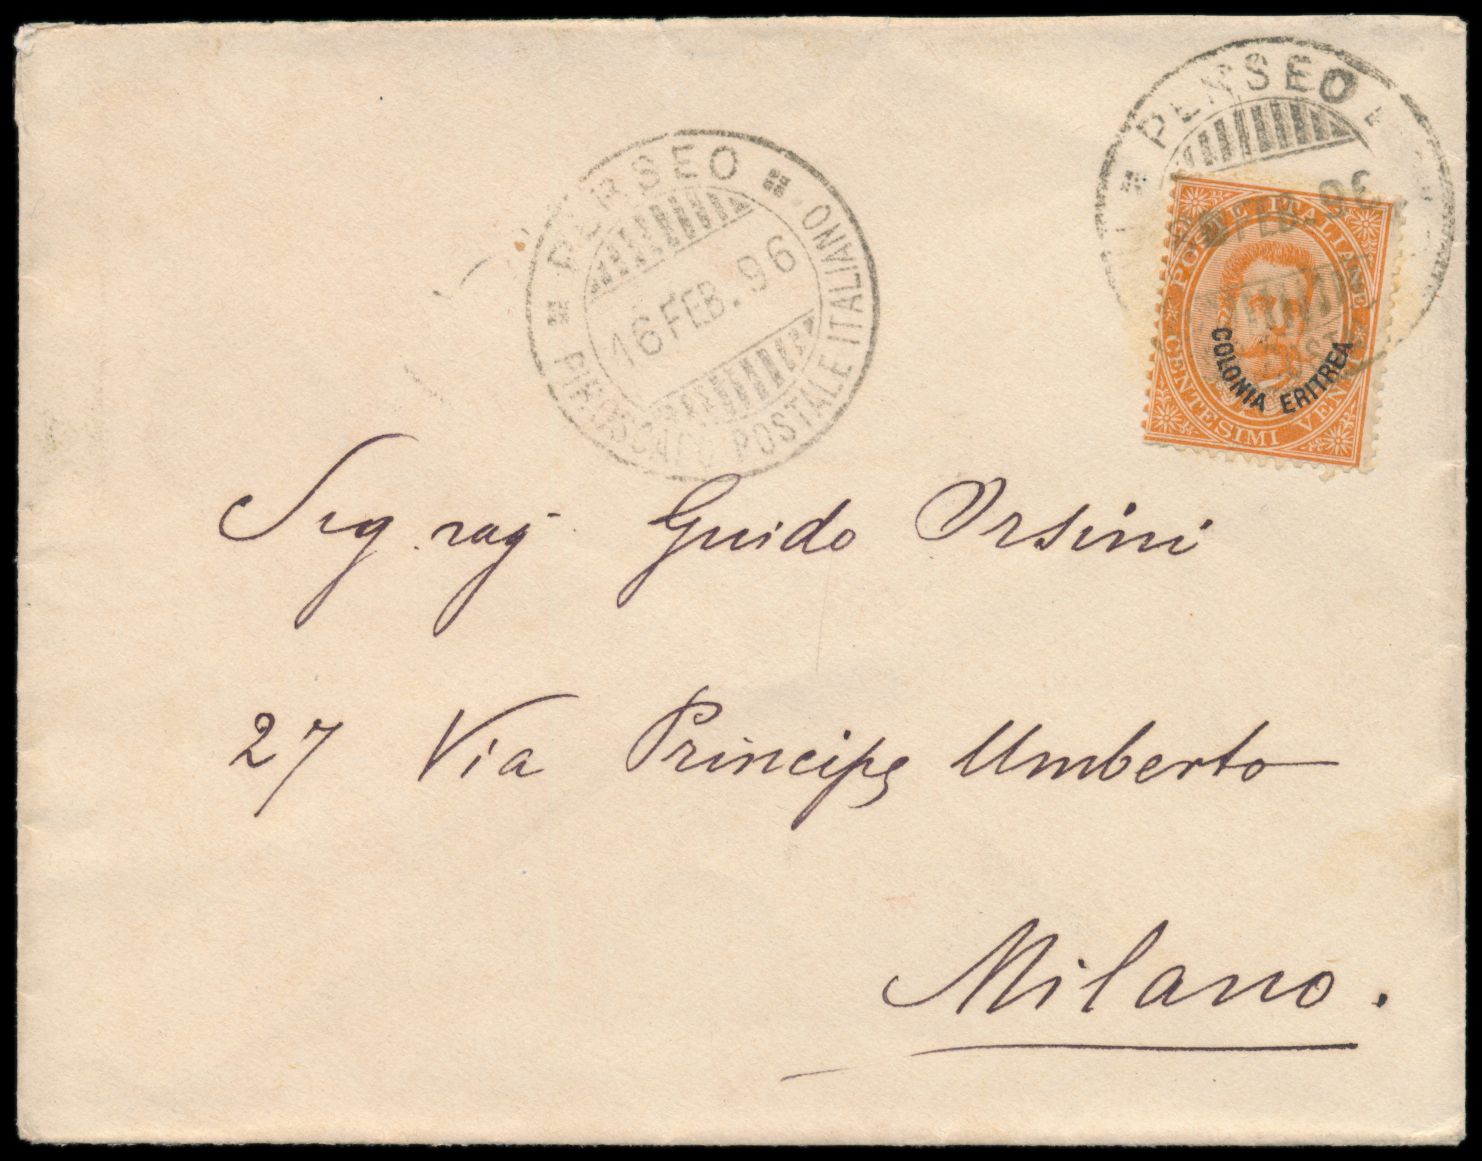 PERSEO
16 FEB. 96
PIROSCAFO POSTALE ITALIANO
PERSEO
FEB. 96
POSTE ITALIANE
COLONIA ERITREA
CENTESIMI VENTI
Sig. rag. Guido Orsini
27 Via Principe Umberto
Milano.